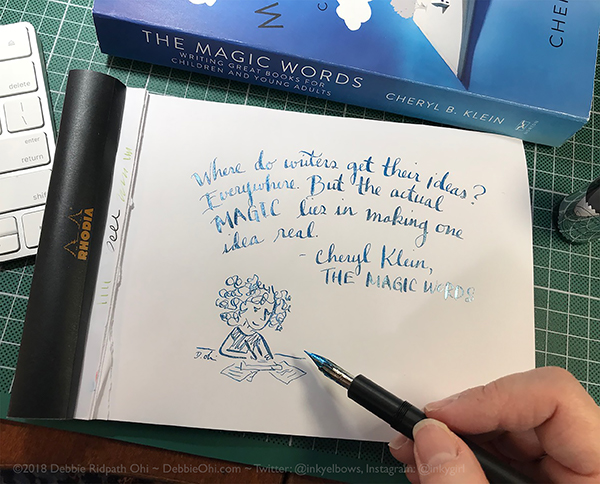 THE MAGIC WORDS
WRITING GREAT BOOKS FOR
CHILDREN AND YOUNG ADULTS
CHERYL B. KLEIN
CHE
delete
enter
return
shift
RHODIA
see
Where do writers get their ideas?
Everywhere. But the actual
MAGIC lies in making one
idea real.
- Cheryl Klein,
THE MAGIC WORDS
D. Ohi
©2018 Debbie Ridpath Ohi ~ DebbieOhi.com ~ Twitter: @inkyelbows, Instagram: @inkygirl